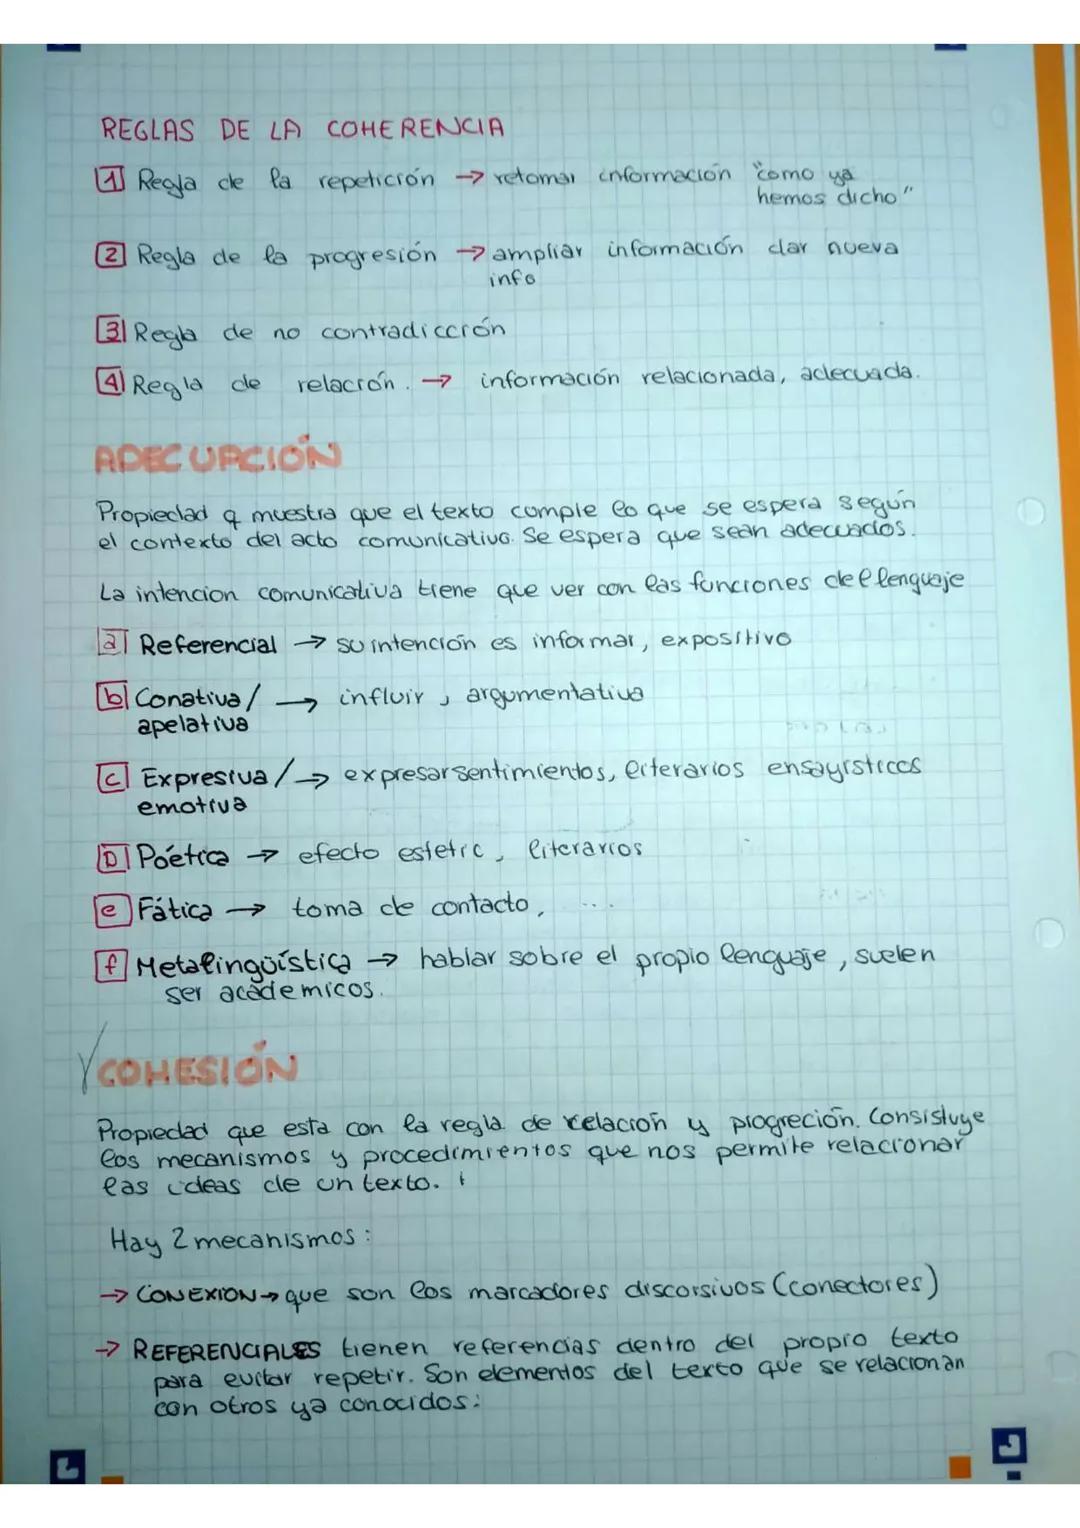 REGLAS DE LA COHERENCIA
1 Regla de la repetición → retomar información "como ya
hemos dicho"
2 Regla de la progresión → ampliar información dar nueva
info
3 Regla de no contradicción
4 Regla de relación. → información relacionada, adecuada.
ADECUACIÓN
Propiedad q muestra que el texto cumple lo que se espera según
el contexto del acto comunicativo. Se espera que sean adecuados.
La intencion comunicativa tiene que ver con las funciones del lenguaje
a Referencial → su intención es informar, expositivo
b Conativa/ → influir, argumentativa
apelativa
c Expresiva/ → expresar sentimientos, literarios ensayísticos
emotiva
D Poética → efecto estetic, literarios
e Fática → toma de contacto, ...
f Metalingüística → hablar sobre el propio lenguaje, suelen
ser académicos.
COHESIÓN
Propiedad que esta con la regla de relación y progreción. Consistuye
los mecanismos y procedimientos que nos permite relacionar
las ideas de un texto.
Hay 2 mecanismos:
→ CONEXION → que son los marcadores discorsivos (conectores)
→ REFERENCIALES tienen referencias dentro del propio texto
para evitar repetir. Son elementos del texto que se relacionan
con otros ya conocidos: